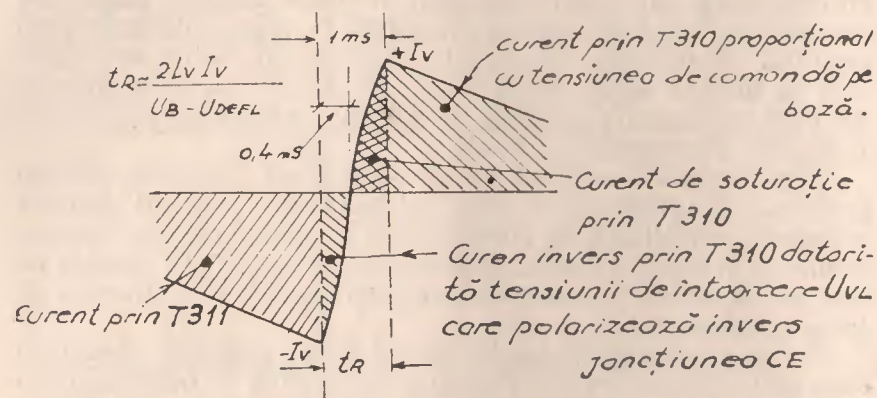 1ms
+Iv
curent prin T310 proporțional
cu tensiunea de comandă pe
bază.
tR = 2Lv Iv
UB - UDEFL
0,4ms
Curent de saturație
prin T310
Curen invers prin T310 datori-
tă tensiunii de întoarcere UVL
care polarizează invers
joncțiunea CE
Curent prin T311
-Iv
tR